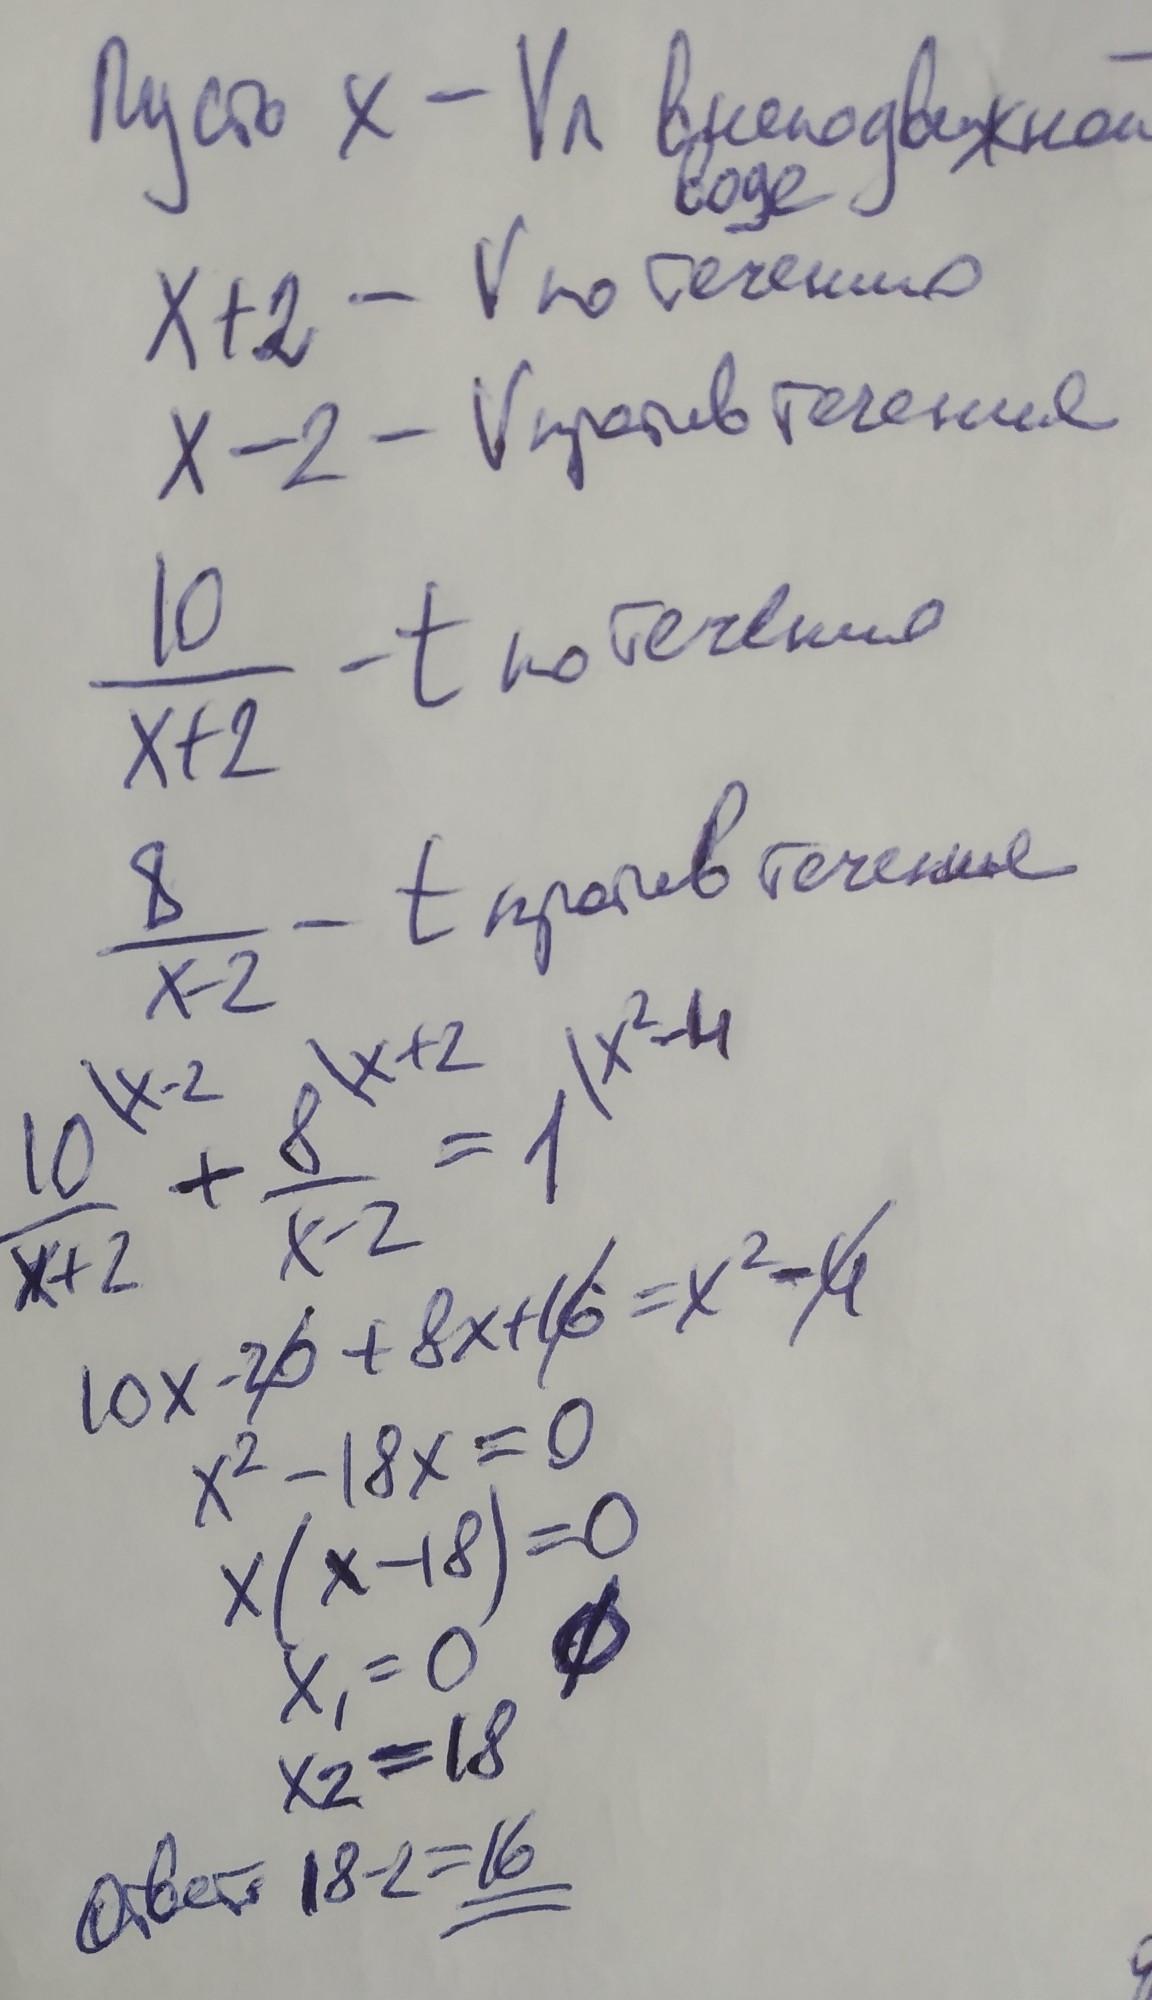 Пусть x – Vл в неподвижной
воде
x+2 – V по течению
x-2 – V против течения
10/(x+2) – t по течению
8/(x-2) – t против течения
10/(x+2) \x-2 + 8/(x-2) \x+2 = 1 \x²-4
10x-20+8x+16=x²-4
x²-18x=0
x(x-18)=0
x₁=0 ∅
x₂=18
Ответ: 18-2=16